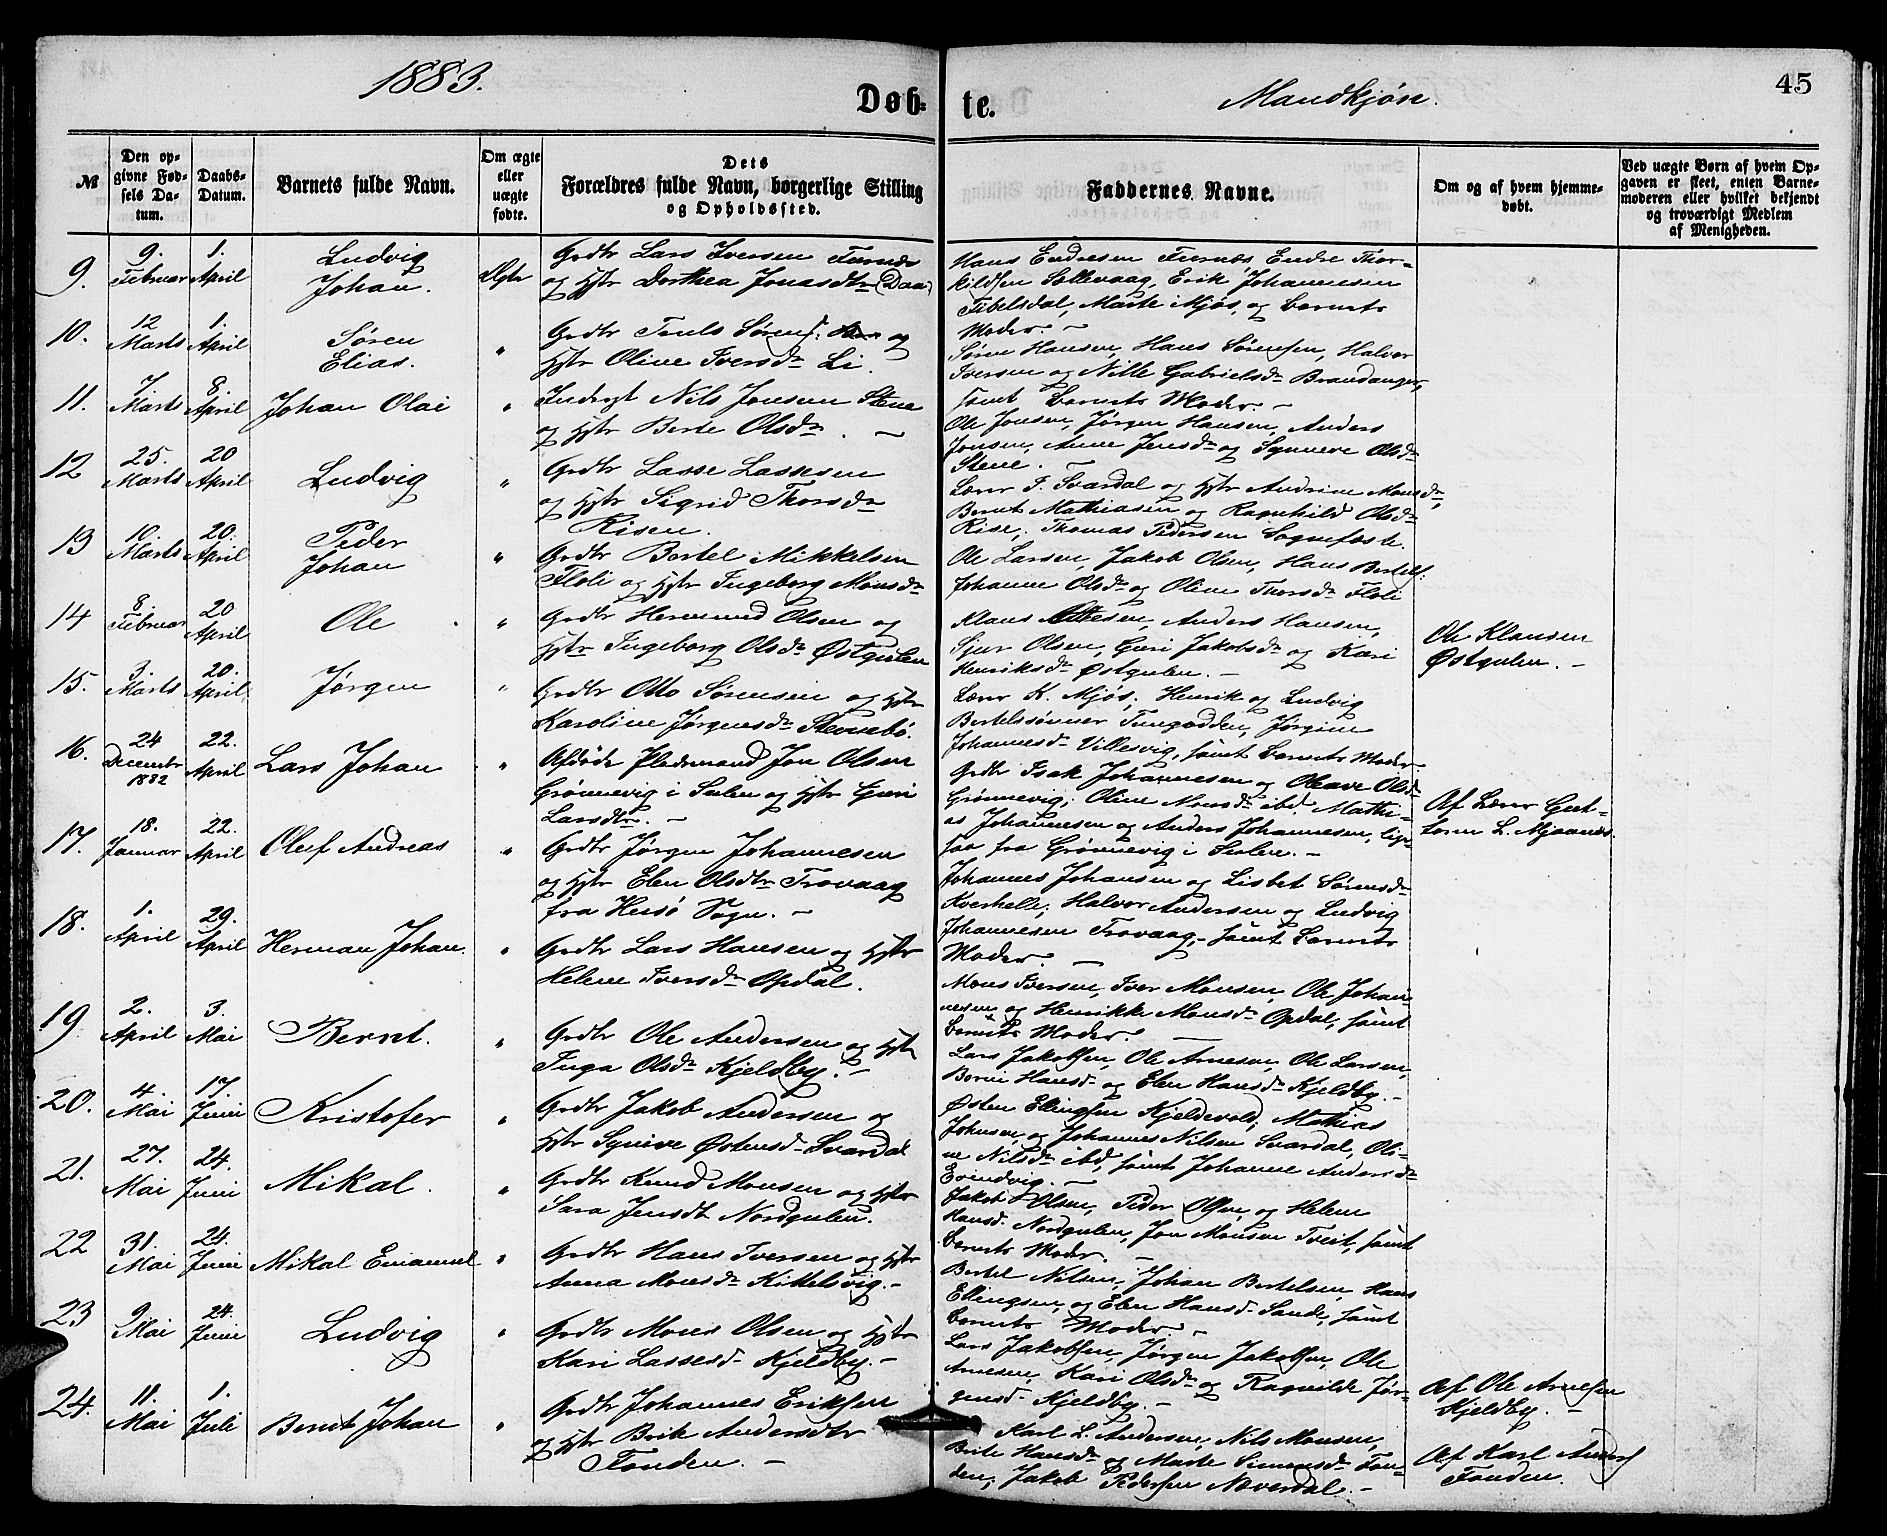 1883.
Døb-
te.
Mandkjøn.
45
№
Den op-
givne Fød-
sels Da-
tum.
Daabs-
Datum.
Barnets fulde Navn.
Om ægte
eller
uægte
fødte.
Dets
Forældres fulde Navn, borgerlige Stilling
og Opholdssted.
Faddernes Navne.
Om og af hvem hjemme-
døbt.
Ved uægte Børn af hvem Op-
gaven er skeet, enten Barne-
moderen eller hvilket bekjendt
og troværdigt Medlem
af Menigheden.
9.
9.
Februar
1.
April
Ludvig
Johan.
Ægte
Grdbr Lars Iversen Furnæs
og Hstr Dorthea Jonasdtr (Daa)
Hans Endresen Furnæs, Endre Thor-
kildsen Sollevaag, Erik Johannesen
Tibelsdal, Marte Mjøs, og Barnets
Moder. —
10.
12
Marts
1.
April
Søren
Elias.
"
Grdbr Truls Sørens. og
Hstr Oline Iversdr Li.
Søren Hansen, Hans Sørensen, Halvor
Iversen og Nille Gabrielsdr Brandanger,
samt Barnets Moder. —
11.
7.
Marts
8.
April
Johan Olai
"
Inderst Nils Jonsen Stene
og Hstr Berte Olsdr. —
Ole Jonsen, Jørgen Hansen, Anders
Jonsen, Anne Jensdr og Synneve Olsdr
Stene.
12
25.
Marts
20
April
Ludvig
"
Grdbr Lasse Lassesen
og Hstr Sigrid Thorsdr
Risen.
Lærer T. Svardal og Hstr Andrine Monsdr,
Bernt Mathiasen og Ragnhild Olsdr
Rise, Thomas Pedersen Sognefeste.
13
10.
Marts
20.
April
Peder
Johan
"
Grdbr Bertel Mikkelsen
Floli og Hstr Ingeborg Monsdr
Ole Larsen, Jakob Olsen, Hans Bertels.
Johanne Olsdr og Oline Thorsdr Floli
14
8.
Februar
20
April
Ole
"
Grdbr Hermund Olsen og
Hstr Ingeborg Olsdr Østgulen
Klaus Ottesen, Anders Hansen,
Sjur Olsen, Guri Jakobsdr og Kari
Henriksdr Østgulen. —
Ole Klausen
Østgulen. —
15.
3.
Marts
20.
April
Jørgen
"
Grdbr Otto Sørensen og Hstr
Karoline Jørgensdr Stensebø.
Lærer K. Mjøs, Henrik og Ludvig
Bertelssønner Tungodden, Jørgine
Johannesdr Villesvig, samt Barnets Moder
16.
24
December
1882
22.
April
Lars Johan
"
Afdøde Pladsmand Jon Olsen
Grønnevig i Sulen og Hstr Guri
Larsdtr. —
Grdbr Isak Johannesen og Oleave Olsdr
Grønnevig, Oline Monsdr ibd, Mathi-
as Johannesen og Anders Johannesen, lige-
saa fra Grønnevig i Sulen. —
Af Lærer Gut-
torm L. Mjaanes.
17.
18.
Januar
22.
April
Oluf Andreas
"
Grdbr Jørgen Johannesen
og Hstr Elen Olsdtr Trovaag
fra Husø Sogn. —
Johannes Johansen og Lisbet Sørensdr
Kverhelle, Halvor Andersen og Ludvig
Johannesen Trovaag, samt Barnets
Moder. —
18.
1.
April
29.
April
Herman Johan.
"
Grdbr Lars Hansen og Hstr
Helene Iversdr Opdal.
Mons Iversen, Iver Monsen, Ole Johan-
nesen og Henrikke Monsdr Opdal, samt
Barnets Moder. —
19
2.
April
3.
Mai
Bernt.
"
Grdbr Ole Andersen og Hstr
Inga Olsdr Kjeldby. —
Lars Jakobsen, Ole Arnesen, Ole Larsen,
Berni Hansdr og Elen Hansdr Kjeldby. —
20.
4.
Mai
17.
Juni
Kristofer
"
Grdbr Jakob Andersen og
Hstr Synive Østensdr Svardal
Østen Ellingsen Kjeldevold, Mathias
Johnsen og Johannes Nilsen Svardal, Oli-
ne Nilsdr ibd, samt Johanne Andersdr
Evindvig. —
21.
27.
Mai
24.
Juni
Mikal.
"
Grdbr Knud Monsen og Hstr
Sara Jensdt Nordgulen.
Jakob Olsen, Peder Olsen og Helene
Hansd. Nordgulen, Jon Monsen Tveit, samt
Barnets Moder. —
22
31.
Mai
24.
Juni
Mikal Emanuel
"
Grdbr Hans Iversen og Hstr
Anna Monsdr Kittelsvig. —
Bertel Nilsen, Johan Bertelsen, Hans
Ellingsen og Elen Hansd. Sande, samt
Barnets Moder. —
23
9
Mai
24.
Juni
Ludvig
"
Grdbr Mons Olsen og Hstr
Kari Lassesd. Kjeldby. —
Lars Jakobsen, Jørgen Jakobsen, Ole
Arnesen, Kari Olsdr og Ragnilde Jør-
gensd. Kjeldby. —
Af Ole Arnesen
Kjeldby. —
24.
11.
Mai
1.
Juli
Bernt Johan
"
Grdbr Johannes Eriksen
og Hstr Brite Andersdtr
Fonden. —
Karl L. Andersen, Nils Monsen,
Brite Hansdr og Marte Simonsdr Fon-
den, Jakob Pedersen Neverdal. —
Af Karl Anders.
Fonden.